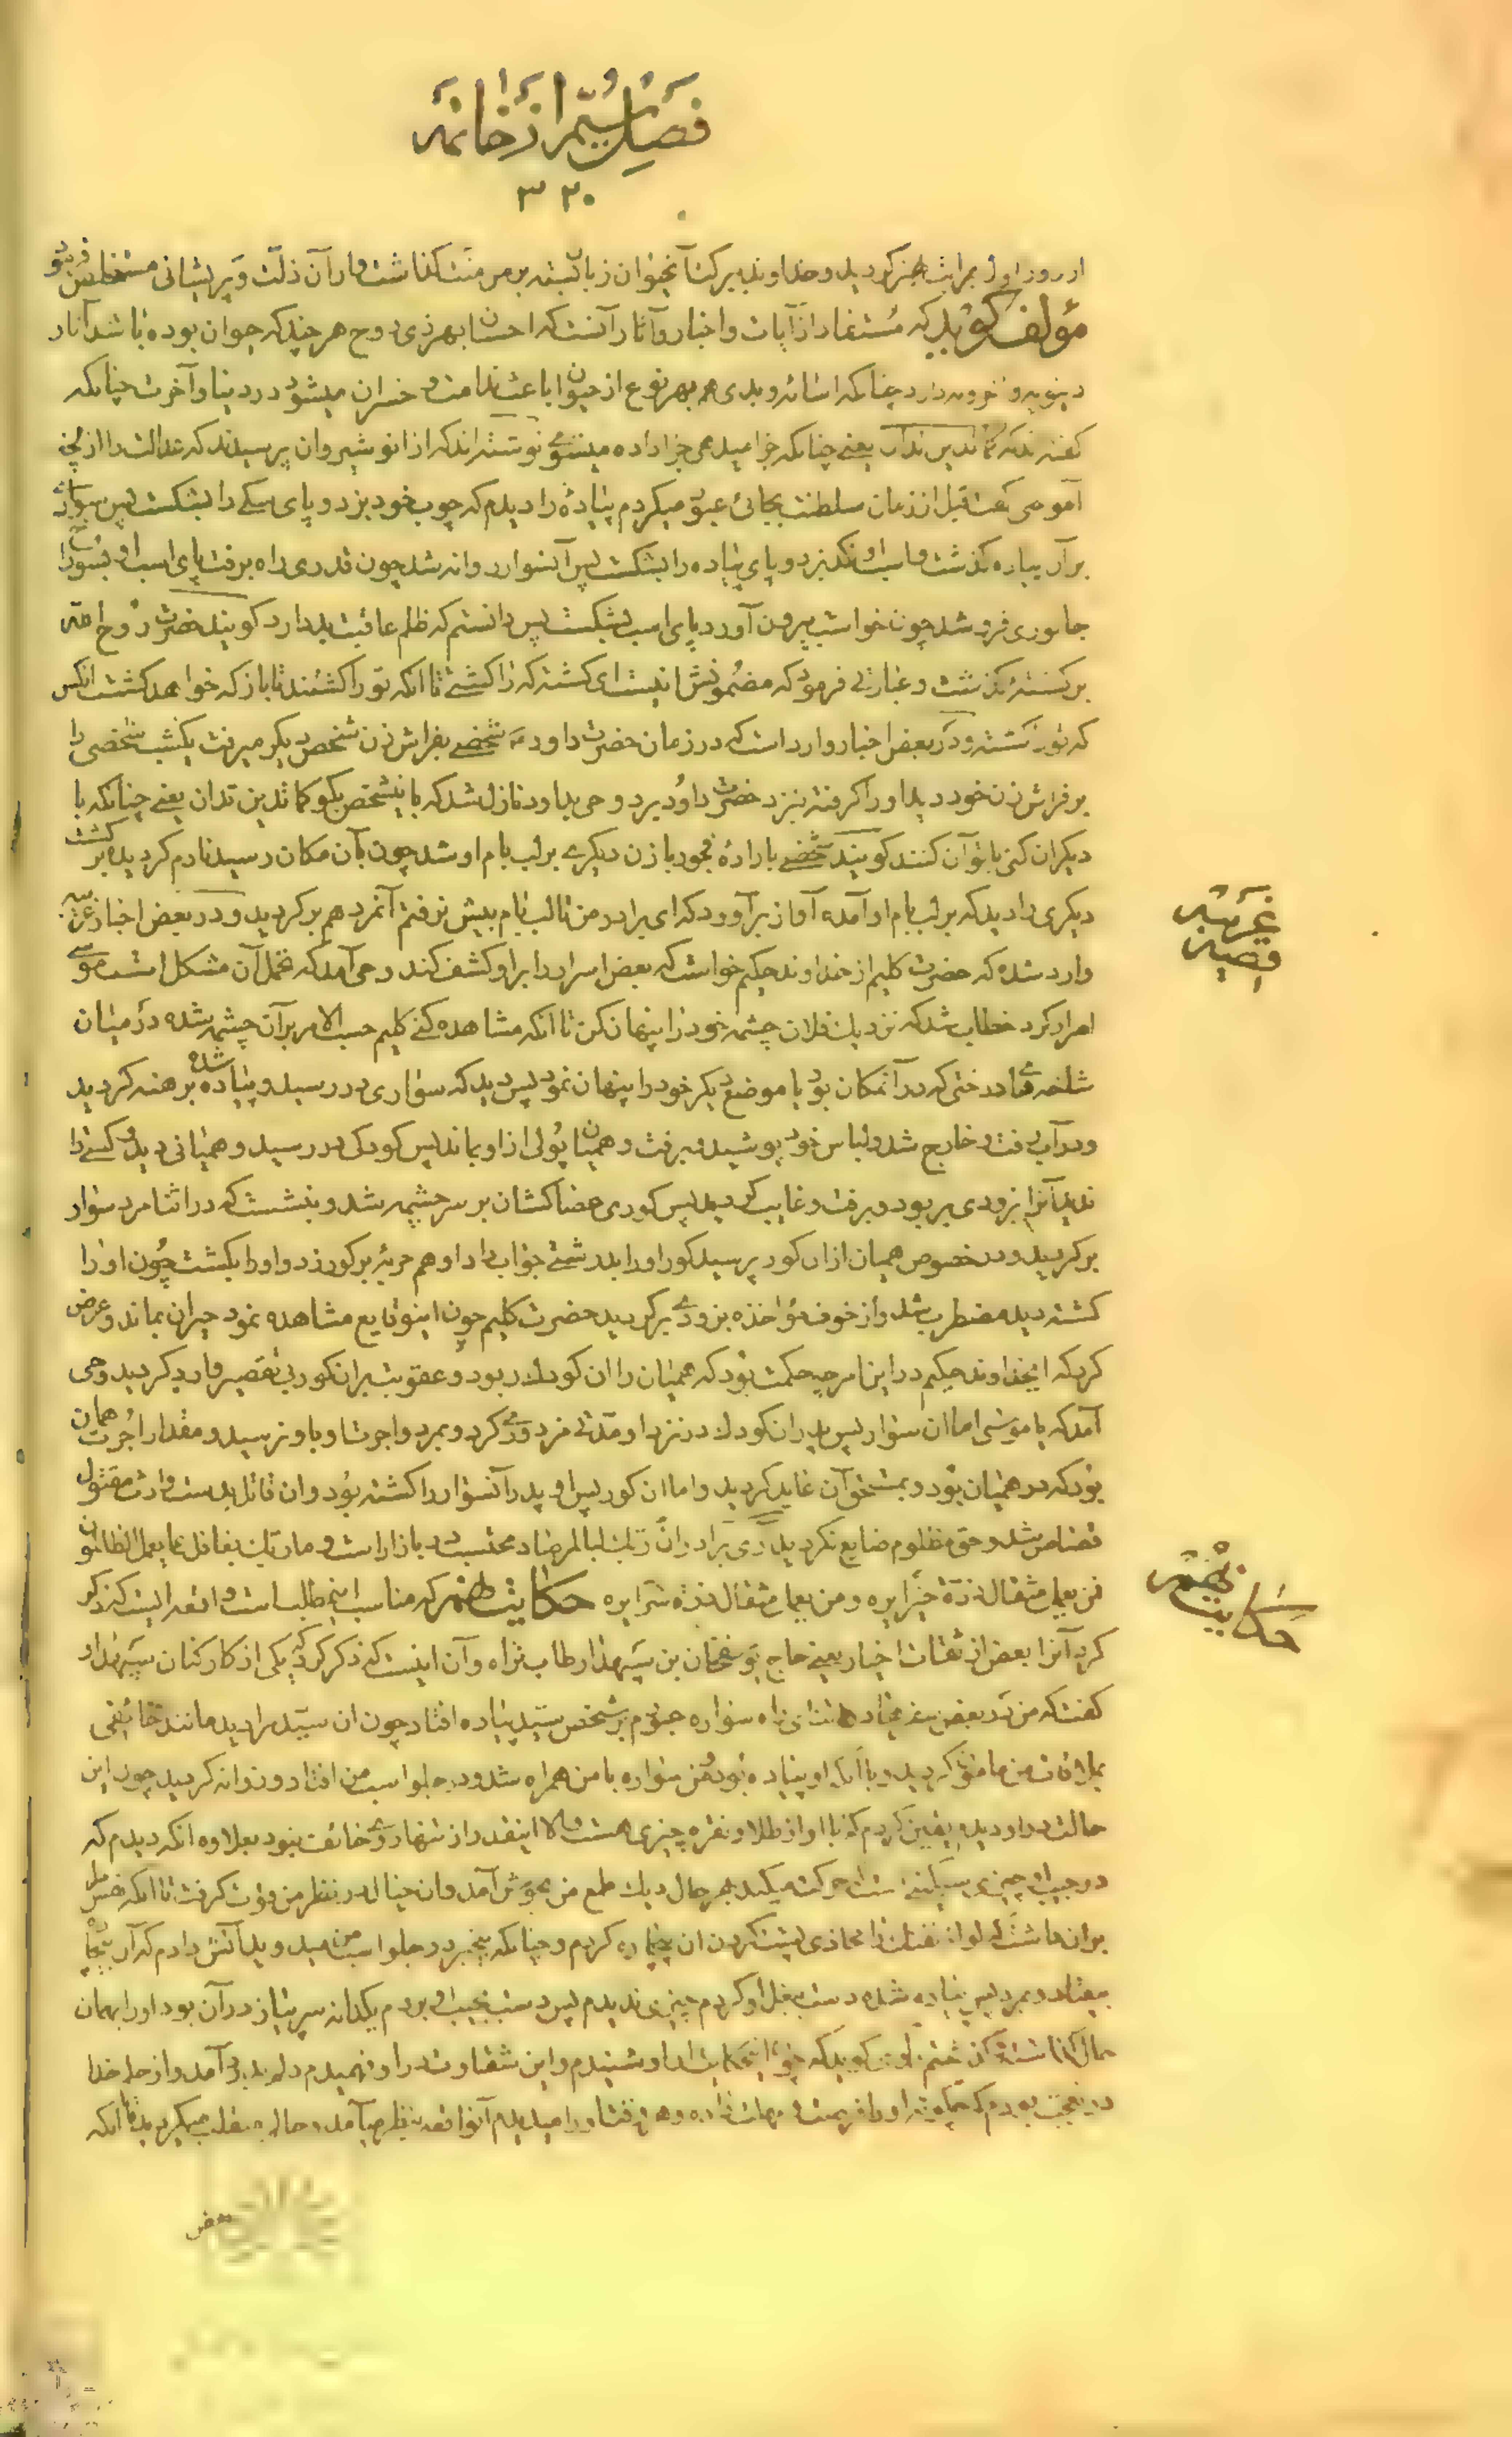 فصل سیم از خاتمه
۳۲۰
از روز اول بمراتب بهتر گردید و خداوند ببرکت آنحیوان زبان بسته بر من منت گذاشت و از آن ذلت و پریشانی مستخلص فرمود
مؤلف گوید که مستفاد از آیات و اخبار و آثار آنست که احسان بهر ذی روح هر چند که حیوان بوده باشد آثار
دنیویه و اخرویه دارد چنانکه اسائه و بدی هم بهر نوع از حیوان باعث ندامت و خسران میشود در دنیا و آخرت چنانکه
گفته اند که کما تدین تدان یعنی چنانکه جزا میدهی جزا داده میشوی نوشته اند که از انوشیروان پرسیدند که عدالت را از که
آموختی گفت قبل از زمان سلطنت بجائی عبور میکردم پیاده را دیدم که چوب خود بزد و پای سگی را بشکست پس سواری
بر آن پیاده گذشت و اسب او لگد بزد و پای پیاده را بشکست پس آنسوار روانه شد چون قدری راه برفت پای اسب او بسوراخ
جانوری فرو شد چون خواست بیرون آورد پای اسب بشکست پس دانستم که ظلم عاقبت بد دارد گویند حضرت روح الله
بر کشته بگذشت و عبارتی فرمود که مضمونش اینست ای کشته که را کشتی تا آنکه تو را کشتند تا باز که خواهد کشت آنکس
که تو را کشته و در بعض اخبار وارد است که در زمان حضرت داود ع شخصی بفراش زن شخص دیگر میرفت یکشب شخصی را
بر فراش زن خود دید او را گرفته بنزد حضرت داود برد وحی بداود نازل شد که باینشخص بگو کما تدین تدان یعنی چنانکه با
دیگران کنی با تو آن کنند گویند شخصی باراده فجور با زن دیگری بر لب بام او شد چون بآن مکان رسید نادم گردیده برگشت
دیگری را دید که بر لب بام او آمده آواز برآورد که ای برادر من تا لب بام بیش نرفتم آنمرد هم برگردید و در بعض اخبار غریبه
وارد شده که حضرت کلیم از خداوند حکیم خواست که بعض اسرار را بر او کشف کند وحی آمد که تحمل آن مشکل است موسی
اصرار کرد خطاب شد که نزدیک فلان چشمه خود را پنهان کن تا آنکه مشاهده کنی کلیم حسب الامر بر آن چشمه شده در میان
شاخه های درختی که در آنمکان بود یا موضع دیگر خود را پنهان نمود پس دید که سواری در رسید و پیاده شده برهنه گردید
و در آب رفت و خارج شد و لباس خود پوشید و برفت و همیان پولی از او بماند پس کودکی در رسید و همیانی دید و کسی را
ندید آنرا بزودی بربود و برفت و غایب گردید پس کوری عصا کشان بر سر چشمه شد و بنشست که در اثنا مرد سوار
برگردید و در خصوص همیان از آن کور پرسید کور او را بدرشتی جواب داد او هم حربه بر کور زد و او را بکشت چون او را
کشته دید مضطرب شد و از خوف مؤاخذه بزودی برگردید حضرت کلیم چون اینوقایع مشاهده نمود حیران بماند و عرض
کرد که ایخداوند حکیم در این امر چه حکمت بود که همیان را آن کودک ربود و عقوبت بر آن کور بی تقصیر وارد گردید وحی
آمد که یا موسی اما آن سوار پس پدر آن کودک در نزد او مدتی مزدوری کرد و بمرد و اجرت او باو نرسید و مقدار اجرت همان
بود که در همیان بود و بمستحق آن عاید گردید و اما آن کور پس او پدر آنسوار را کشته بود و آن قاتل بدست وارث مقتول
قصاص شد و حق مظلوم ضایع نگردید آری برادران ربک لبالمرصاد محتسب در بازار است و ما ربک بغافل عما یعمل الظالمون
فمن یعمل مثقال ذرة خیرا یره و من یعمل مثقال ذرة شرا یره حکایت نهم که مناسب اینمطلب است واقعه ایست که ذکر
کرد آنرا بعض از ثقات اخیار یعنی حاج بن سپهدار طاب ثراه و آن اینست که ذکر کرد که یکی از کارکنان سپهدار
گفت که من در بعض سفرها در اثنای راه سواره عبورم بر شخص سید پیاده افتاد چون آن سید مرا دید مانند خائفی
بملاقات من مانوس گردید و با آنکه او پیاده بود و من سواره با من همراه شد و در جلو اسب من افتاد و روانه گردید چون این
حالت را از او دیدم یقین کردم که با او از طلا و نقره چیزی هست والا اینقدر از تنها روی خائف نبود بعلاوه آنکه دیدم که
در جیب او چیزی سنگینی است حرکت میکند بهر حال دیک طمع من بجوش آمد و آن خیال در نظر من قوت گرفت تا آنکه نفس مرا
بران داشت که لوله تفنگ را محاذی پشت گردن آن بیچاره کردم و چنانکه بیخبر در جلو اسب من میدوید آتش دادم که آن بیچاره
بیفتاد و بمرد پس پیاده شده دست ببغل او کردم چیزی ندیدم پس دست بجیب او بردم یکدانه سر پیاز در آن بود او را بهمان
حال گذاشته گذشتم راوی گوید که چون اینحکایت از او شنیدم و این شقاوت را از او فهمیدم دلم بدرد آمد و از حلم خدا
در تعجب بودم که چگونه او را فرصت و مهلت داده و هر وقت او را میدیدم آنواقعه بنظرم میآمد و حالم منقلب میگردید تا آنکه
بعض
قصه غریبه
حکایت نهم